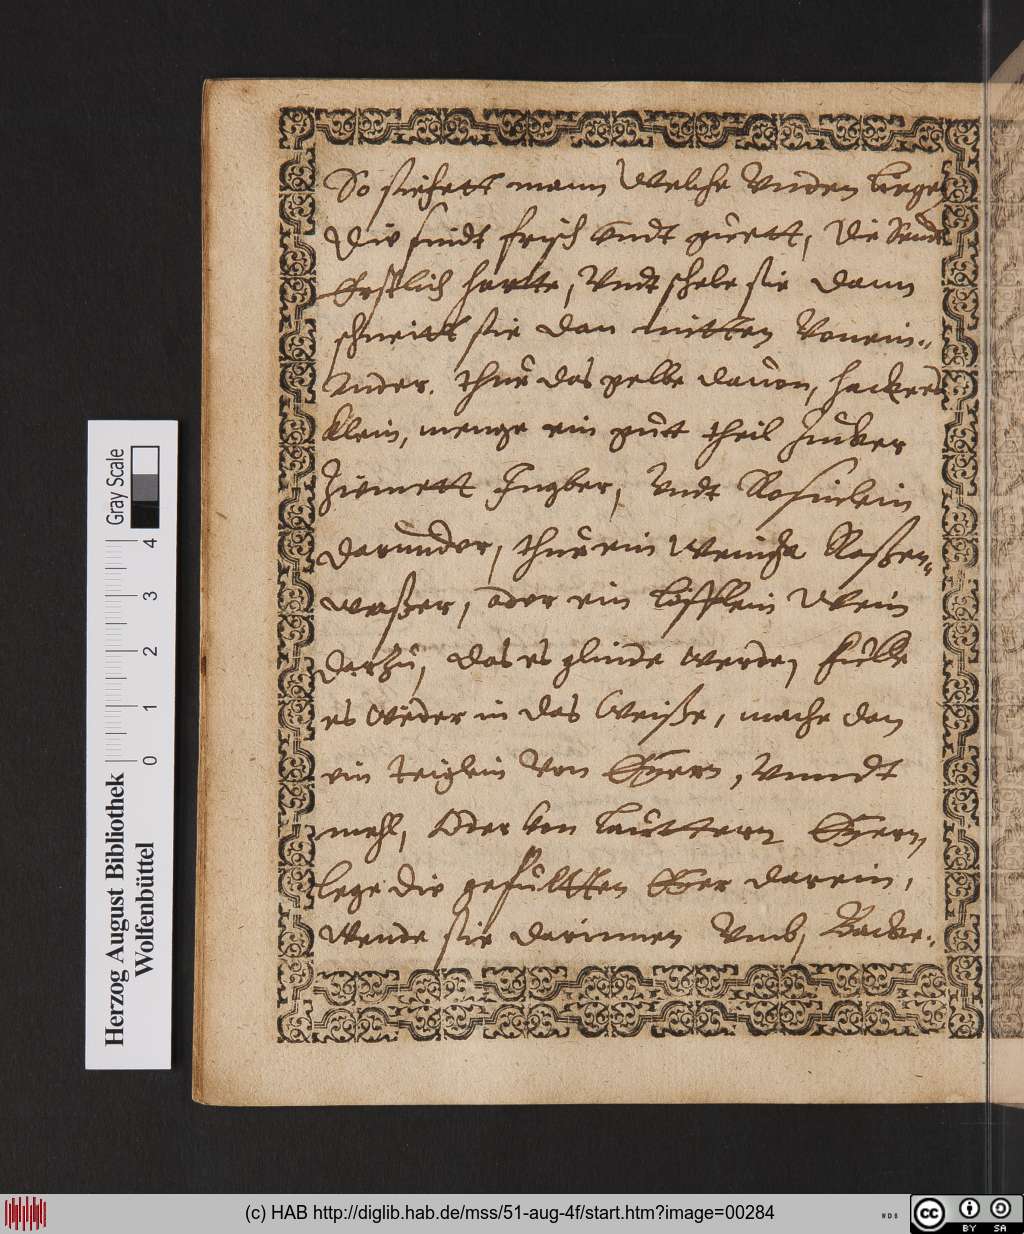 So siehett mann Welche Vnden liegen
Die sindt frisch vndt guett, die Seudt
Erstlich hartte, Vndt schele sie dann
schneitt sie dan mitten Vonein-
Ander. thue das gelbe dauon, hackees
klein, menge ein gutt theil Zucker
Zimmett Ingber, Vndt Rosinlein
darunder, thue ein Weinige Roßen-
waßer, oder ein löfflein Wein
darzu, das es glinde werde, fulle
es wieder in das Weiße, mache dan
ein teiglein Von Eyern, Vnndt
mehl, Oder von lauttern Eyern
lege die gefultten Eyer darein,
Wende sie darinnen Vmb, Backe-
Herzog August Bibliothek
Wolfenbüttel
0 1 2 3 4
Gray Scale
(c) HAB http://diglib.hab.de/mss/51-aug-4f/start.htm?image=00284
WDB
cc BY SA